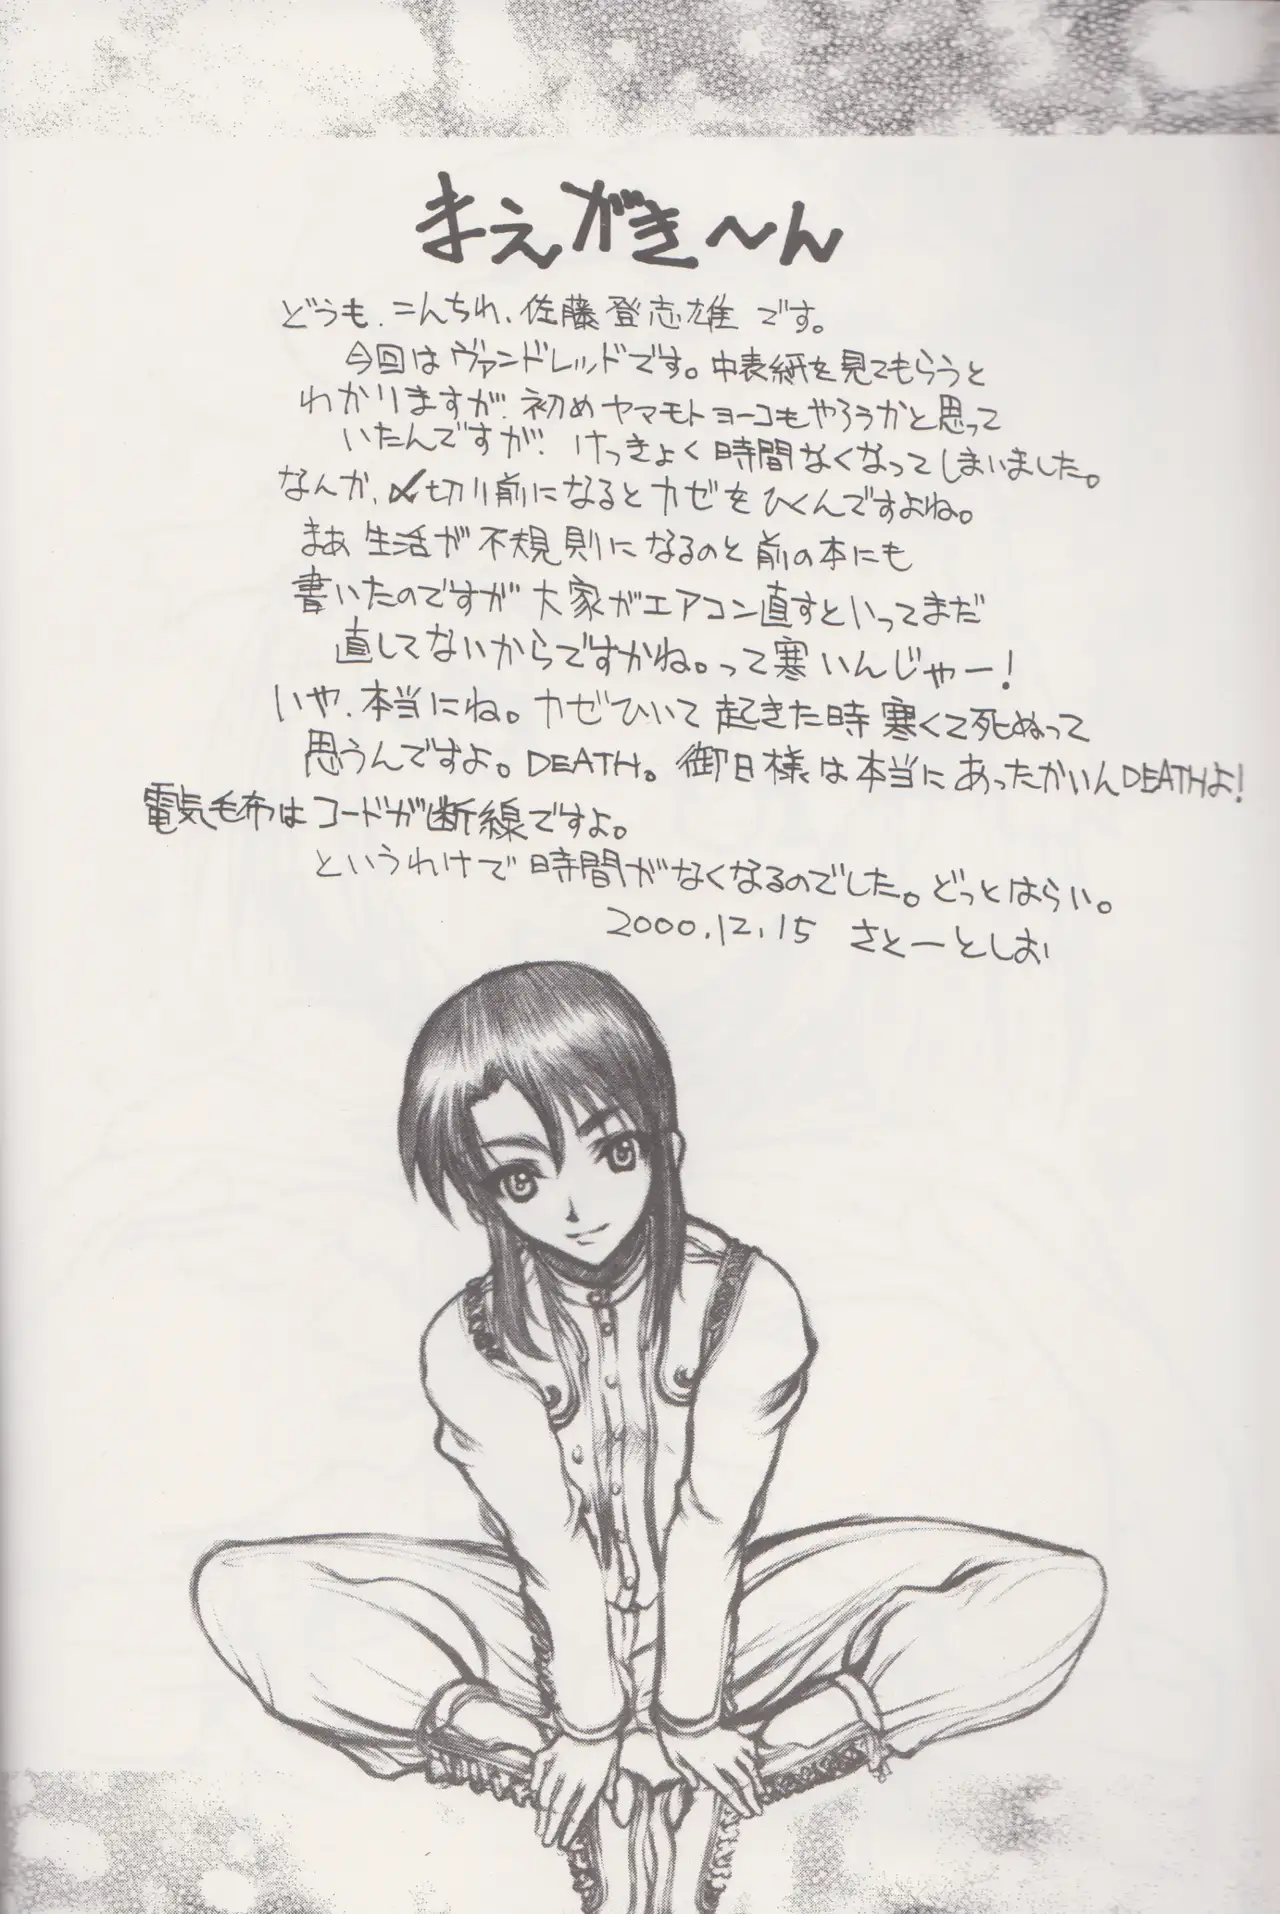 まえがき〜ん
どうも、こんちわ、佐藤登志雄です。
今回はヴァンドレッドです。中表紙を見てもらうと
わかりますが、初めヤマモトヨーコもやろうかと思って
いたんですが、けっきょく時間なくなってしまいました。
なんか、〆切り前になるとカゼをひくんですよね。
まあ生活が不規則になるのと前の本にも
書いたのですが大家がエアコン直すといってまだ
直してないからですかね。って寒いんじゃー！
いや、本当にね。カゼひいて起きた時寒くて死ぬって
思うんですよ。DEATH。御日様は本当にあったかいんDEATHよ！
電気毛布はコードが断線ですよ。
というわけで時間がなくなるのでした。どっとはらい。
2000.12.15 さとーとしお